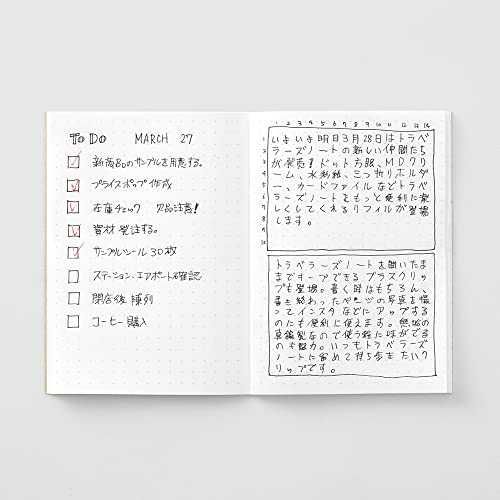 To Do MARCH 27
新商品のサンプルを用意する。
プライスポップ作成
在庫チェック 欠品注意!
資材発注する。
サンプルシール30枚
ステーション、エアポート確認
閉店後 陳列
コーヒー購入
1 2 3 4 5 6 7 8 9 10 11 12 13 14
1 いよいよ明日3月28日はトラベ
2 ラーズノートの新しい仲間たち
3 が発売!ドット方眼、MDクリ
4 ーム、水彩紙、三つ折りホルダ
5 ー、カードファイルなどトラベ
6 ラーズノートをもっと便利に楽
7 しくしてくれるリフィルが登場
8 します。
9
10
トラベラーズノートを開いたま
まですープできる ブラスクリッ
プも登場。書く時はもちろん、
書き終わったページの写真を撮
ってインスタなどにアップする
のにも便利に使えます。無垢の
真鍮製なので使う程に味がでる
のも魅力。いつもトラベラーズ
ノートに留めて持ち歩きたいク
リップです。